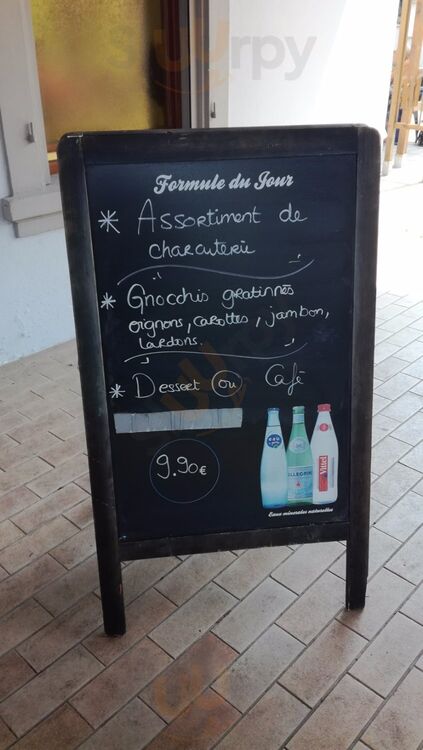 Formule du Jour
* Assortiment de
charcuterie
* Gnocchis gratinnés
oignons, carottes, jambon,
lardons.
* Dessert ou Café
9.90€
PELLEGRINO
Vittel
Eaux minérales naturelles
Surpy